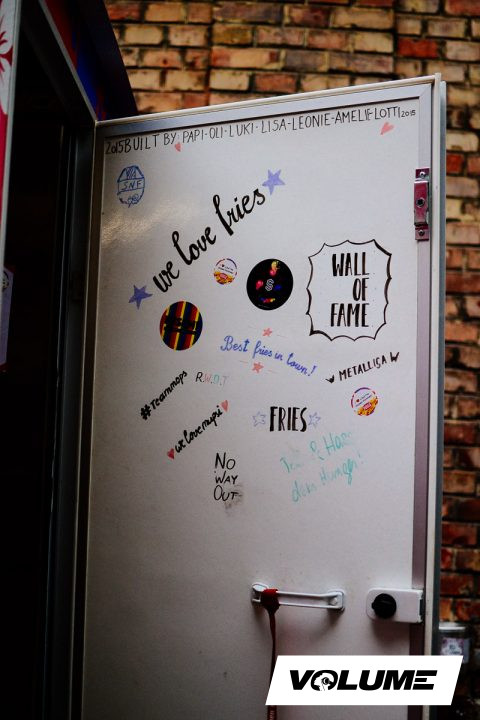 2015 BUILT BY: PAPI-OLI-LUKI-LISA-LEONIE-AMELIE-LOTTI 2015
SNF
we love fries
WALL
OF
FAME
Best fries in town!
METALLISA
R.W.O.T
#teammops
we love mupi
FRIES
NO
WAY
OUT
VOLUME